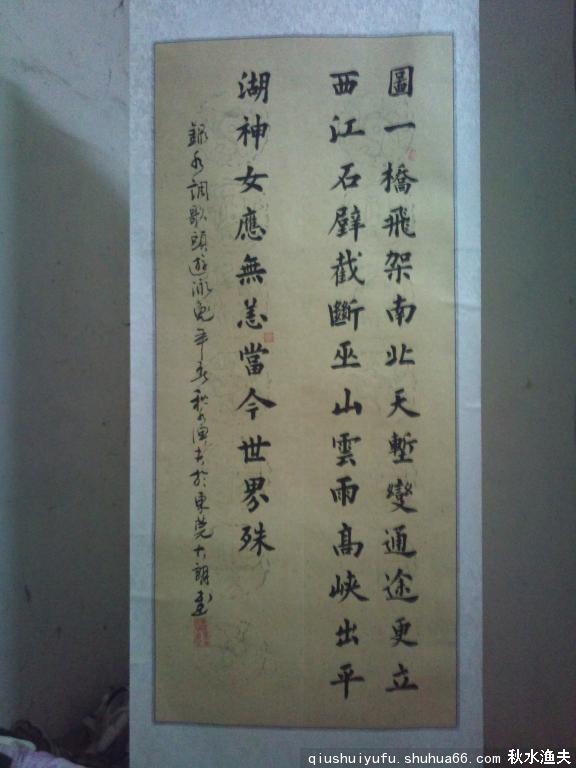 圖一橋飛架南北天塹變通途更立
西江石壁截斷巫山雲雨高峽出平
湖神女應無恙當今世界殊
錄水調歌頭游泳兔年春秋水漁夫於東莞大朗書
qiushuiyufu.shuhua66.com 秋水渔夫